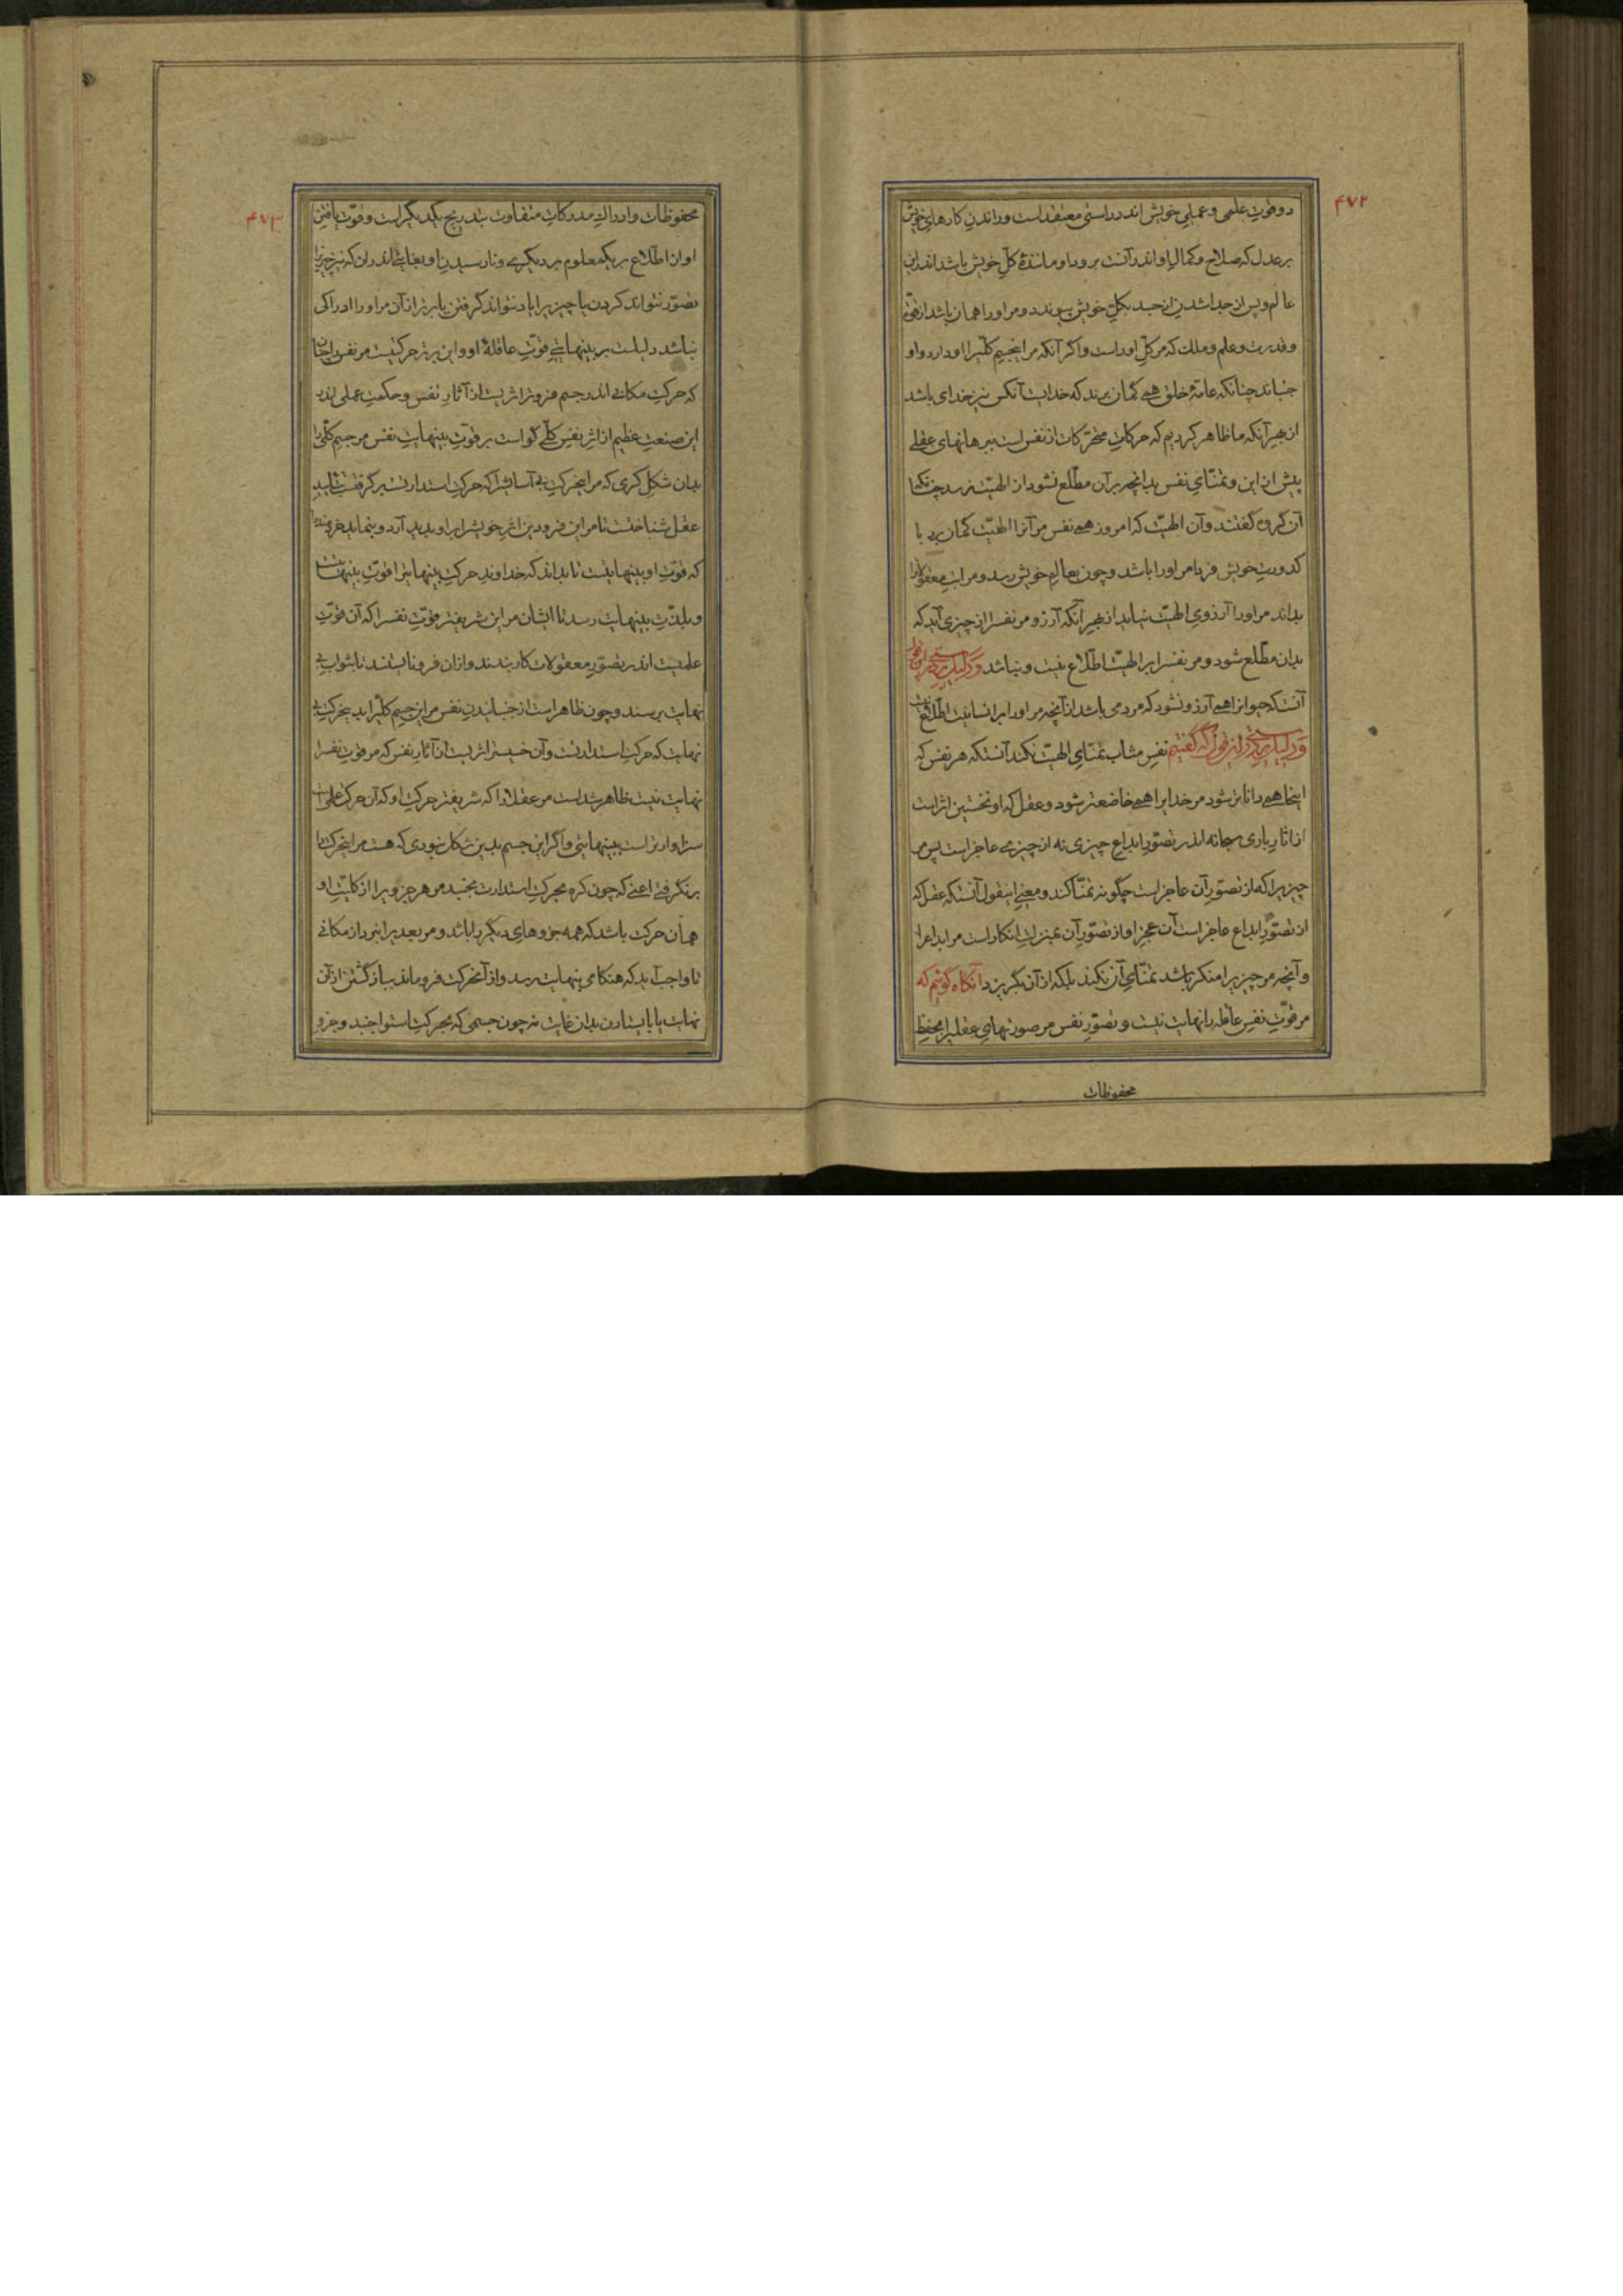 ۴۷۲
دو قوّت علمی و عملی خویش اندر راستی معتقد است و راندن کارهای خویش
بر عدل که صلاح و کمال او اندر آنست برود او مانندهٔ کلّ خویش باشد اندر این
عالم و پس از جدا شدن از جسد بکلّ خویش پیوندد و مر او را همان باشد از قوّت
و قدرت و علم و ملک که مر کلّ او راست و اگر آنکه مر این جسم کلّیرا او دارد و او
جنباند چنانکه عامّهٔ خلق همی گمان برند که خدایست آنکس نیز خدای باشد
از بهر آنکه ما ظاهر کردیم که حرکات متحرّکات از نفس است ببرهانهای عقلی
پیش از این و تمنّای نفس بدانچه بر آن مطّلع نشود از الهیّت نرسد چنانکه
آن گروه گفتند و آن الهیّت که امروز همی نفس مر آنرا الهیّت گمان برد با
کدورت خویش فردا مر او را باشد و چون بعالم خویش رسد و مراتب معقولاترا
بداند مر او را آرزوی الهیّت نیاید از بهر آنکه آرزو مر نفس را از چیزی آید که
بدان مطّلع شود و مر نفس را بر الهیّت اطّلاع نیست و نباشد و دلیل بر درستی این قول
آنست که حیوانرا همی آرزو نشود که مردمی باشد از آنچه مر او را بر انسانیّت اطّلاع نیست
و دلیل بر درستی این قول که گفتیم نفس مثاب تمنّای الهیّت نکند آنستکه هر نفس که
اینجا همی داناتر شود مر خدایرا همی خاضعتر شود و عقل که او نخستین اثر است
از آثار باری سبحانه اندر تصوّر ابداع چیزی نه از چیزی عاجز است پس مر
چیزیرا که از تصوّر آن عاجز است چگونه تمنّا کند و معنی اینقول آنستکه عقل که
از تصوّر ابداع عاجز است آن عجز او از تصوّر آن بمنزلت انکار است مر ابداع را
و آنچه مر چیزیرا منکر باشد تمنّای آن نکند بلکه از آن بگریزد آنگاه گوئیم که
مر قوّت نفس عاقله را نهایت نیست و تصوّر نفس مر صورتهای عقلیرا بحفظ
محفوظات
۴۷۳
محفوظات و ادراک مدرکات متفاوت بتدریج یکدیگر است و قوّت یافتن
او از اطّلاع بر یک معلوم بر دیگری و نارسیدن او بغایتی اندر آن که نیز چیزیرا
تصوّر نتواند کردن یا چیزیرا یاد نتواند گرفتن یا برتر از آن مر او را ادراکی
نباشد دلیلست بر بینهایتی قوّت عاقلهٔ او و این برتر حرکتیست مر نفس را چنان
که حرکت مکانی اندر جسم فروتر اثریست از آثار نفس و حکمت عملی اندر
این صنعت عظیم از اثر نفس کلّی گواست بر قوّت بینهایت نفس مر جسم کلّیرا
بدان شکل کری که مر اینحرکت بی آسایش را که حرکت استدارتست بر گرفتست شاید
عقل شناختست تا مر این فرودین اثر خویش را بر او پدید آرد و بنماید خردمندرا
که قوّت او بینهایتست تا بداند که خداوند حرکت بینهایترا قوّت بینهایتست
و بلذّت بینهایت رسد تا ایشان مر این شریفتر قوّت نفس را که آن قوّت
علمیست اندر تصوّر معقولات کار بندند و از آن فرو نایستند تا بثواب بی
نهایت برسند و چون ظاهر است از جنبانیدن نفس مر این جسم کلّیرا بدینحرکت بی
نهایت که حرکت استدارتست و آن خسیستر اثریست از آثار نفس که مر قوّت نفس را
نهایت نیست ظاهر شد است مر عقلا را که شریفتر حرکت او که آن حرکت علمی است
سزاوارتر است ببینهایتی و اگر این جسم بدین شکل نبودی که هست مر اینحرکت را
بر نگرفتی اعنی که چون کره بحرکت استدارت بجنبد مر هر جزویرا از کلّیّت او
همان حرکت باشد که همه جزوهای دیگر را باشد و مر بعدیرا نبرد از مکانی
تا واجب آید که هنگامی بنهایت رسد و از آنحرکت فرو ماند بباز گشتن از آن
نهایت یا بایستادن بدان غایت نه چون جسمی که بحرکت استوا جنبد و جزو